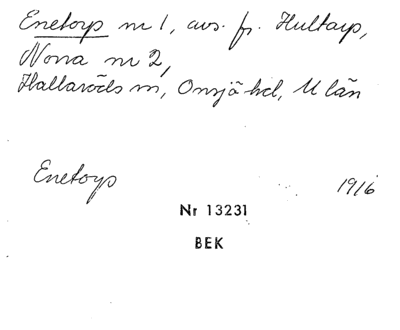 Enetorp nr 1, avs. fr. Hultarp,
Norra nr 2,
Hallaröds sn, Onsjö hd, M län
Enetorp 1916
Nr 13231
BEK